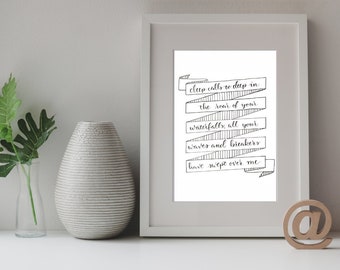 deep calls to deep in
the roar of your
waterfalls; all your
waves and breakers
have swept over me.
@